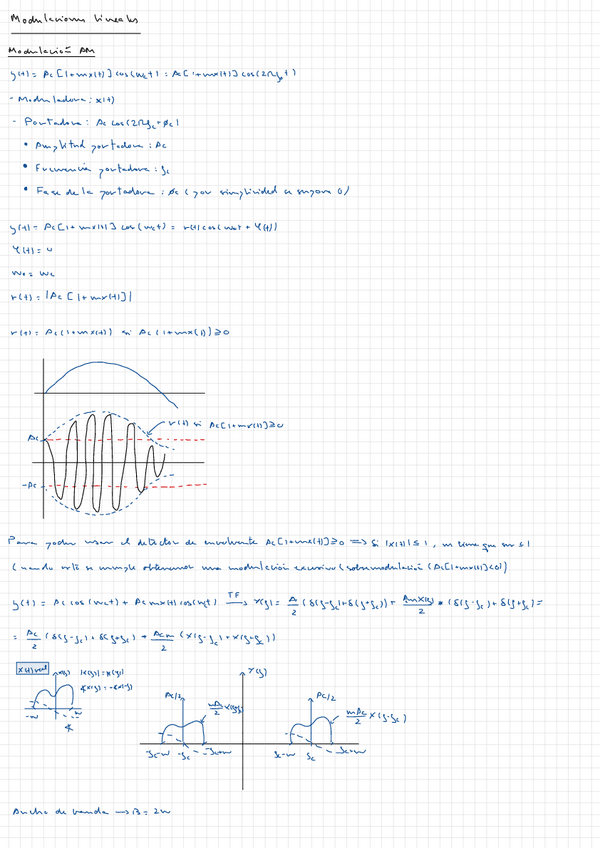 Modulaciones lineales
Modulación AM
y(t) = Ac[1+mx(t)] cos(wct) = Ac[1+mx(t)] cos(2πfct)
- Moduladora: x(t)
- Portadora: Ac cos(2πfc+φc)
• Amplitud portadora: Ac
• Frecuencia portadora: fc
• Fase de la portadora: φc (por simplicidad se supone 0)
y(t) = Ac[1+mx(t)] cos(wct) = r(t) cos(wot + φ(t))
φ(t) = 0
wo = wc
r(t) = |Ac[1+mx(t)]|
r(t) = Ac(1+mx(t)) si Ac(1+mx(t)) ≥ 0
r(t) si Ac[1+mx(t)] ≥ 0
Ac
-Ac
Para poder usar el detector de envolvente Ac[1+mx(t)] ≥ 0 ⟹ Si |x(t)| ≤ 1, m tiene que ser ≤ 1
Cuando no se cumple obtenemos una modulación excesiva (sobremodulación (Ac[1+mx(t)] < 0)
y(t) = Ac cos(wct) + Ac m x(t) cos(wct) TF→ Y(f) = A/2 (δ(f-fc)+δ(f+fc)) + AmX(f)/2 * (δ(f-fc)+δ(f+fc)) =
= Ac/2 (δ(f-fc)+δ(f+fc)) + Acm/2 (X(f-fc)+X(f+fc))
x(t) real
X(f) |X(f)| = X(f)
∡X(f) = -∡X(-f)
-w w
Y(f)
Ac/2 mA/2 X(f+fc)
Ac/2 mAc/2 X(f-fc)
-fc-w -fc -fc+w fc-w fc fc+w
Ancho de banda → B = 2w